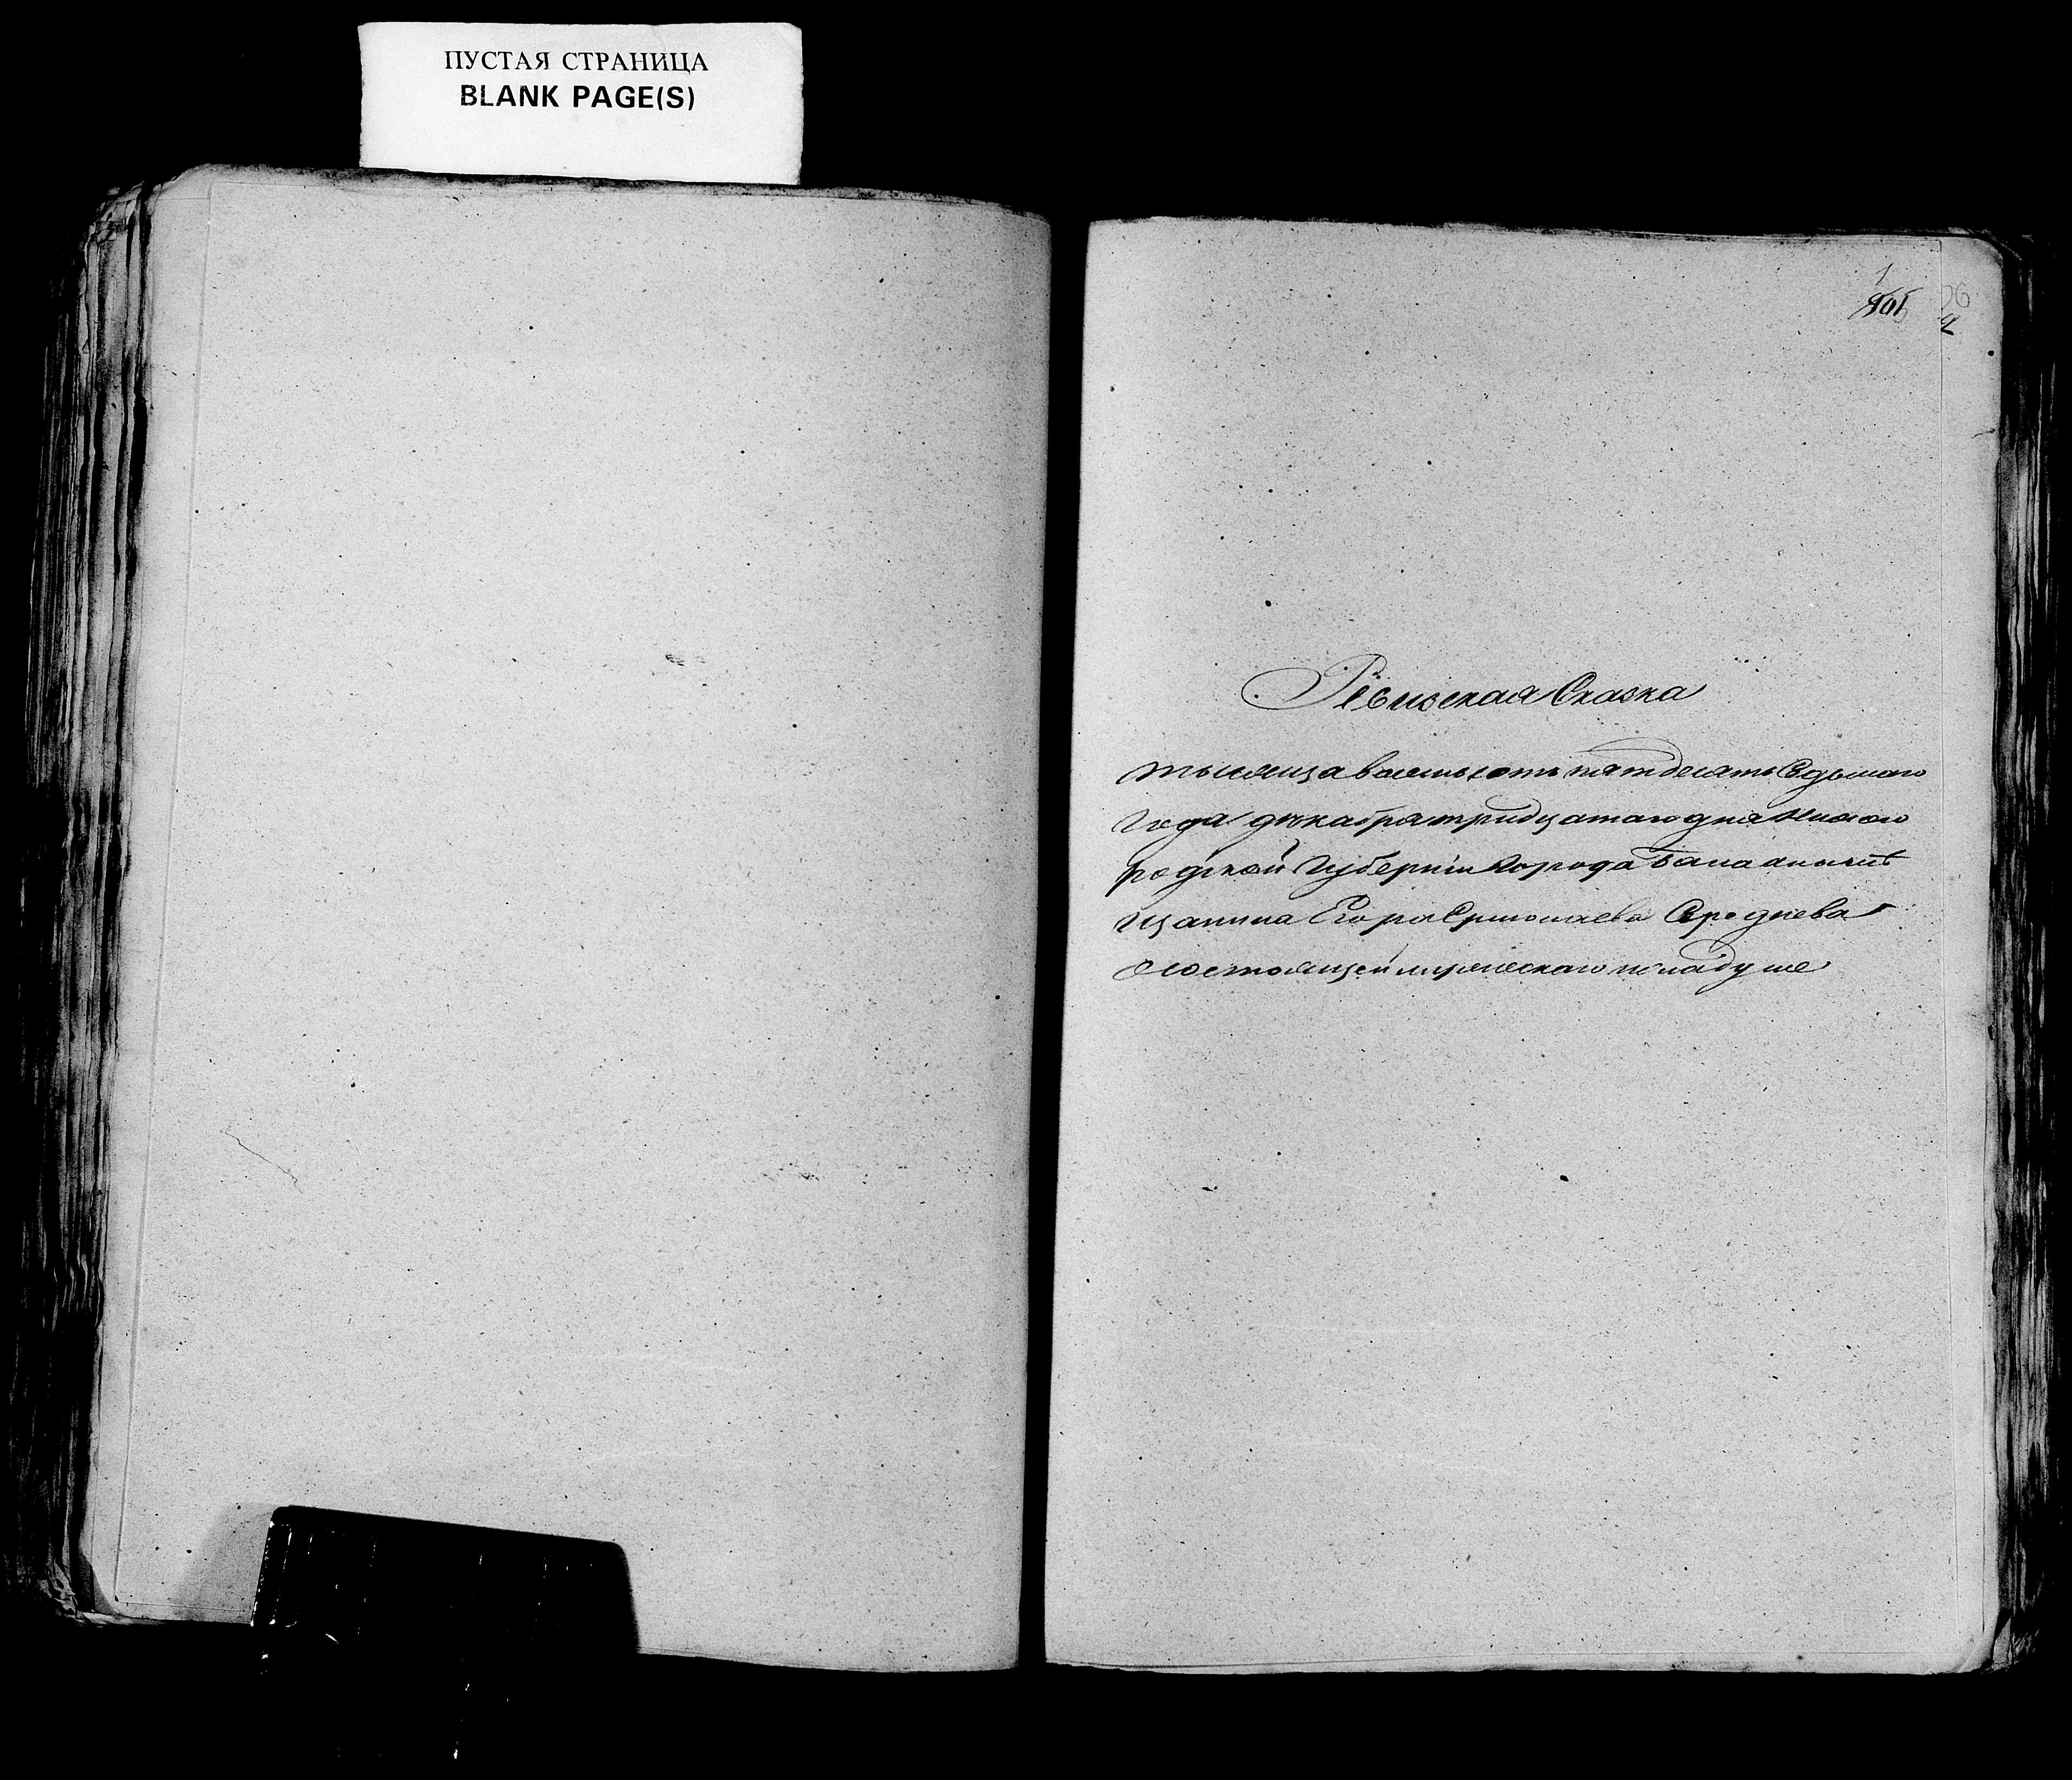 ПУСТАЯ СТРАНИЦА
BLANK PAGE(S)
1
Ревизская Сказка
тысяща восемьсотъ пятдесятъ Седьмаго
Года декабря тридцатаго дня Нижего
родской Губерніи Города Балахны мѣ
щанина Егора Ермолаева
о состоящей мужескаго пола душе